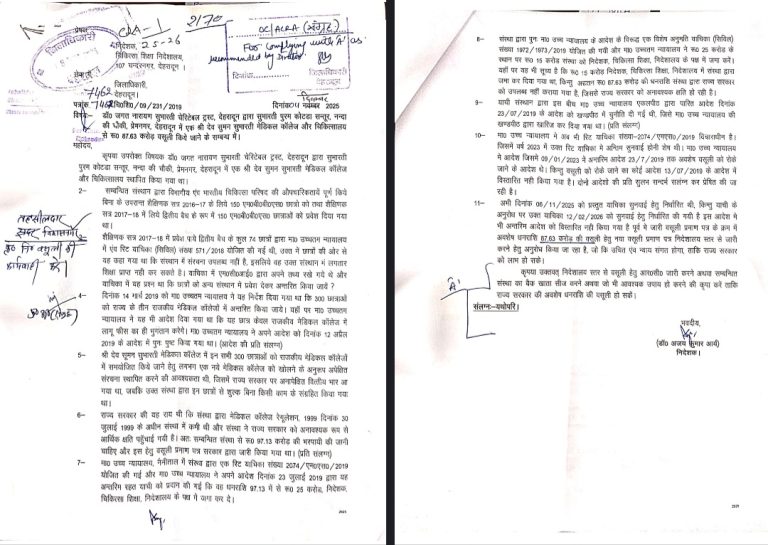 CRA-1
2170
25-26
OC/ACRA (संग्रह)
For complying with 'A' as
recommended by
दिनांक
जिलाधिकारी
निदेशक,
चिकित्सा शिक्षा निदेशालय,
107 चन्दरनगर, देहरादून।
जिलाधिकारी,
देहरादून।
7462
/09/231/2019
दिनांक 2025
विषयः- डॉ० जगत नारायण सुभारती चेरिटेबल ट्रस्ट, देहरादून द्वारा सुभारती पुरम कोटडा सन्तूर, नन्दा
की चौकी, प्रेमनगर, देहरादून में एक श्री देव सुमन सुभारती मेडिकल कॉलेज और चिकित्सालय
से रू0 87.63 करोड़ वसूली किये जाने के सम्बन्ध में।
महोदय,
कृपया उपरोक्त विषयक डॉ० जगत नारायण सुभारती चेरिटेबल ट्रस्ट, देहरादून द्वारा सुभारती
पुरम कोटडा सन्तूर, नन्दा की चौकी, प्रेमनगर, देहरादून में एक श्री देव सुमन सुभारती मेडिकल कॉलेज
और चिकित्सालय स्थापित किया गया था।
2- सम्बन्धित संस्थान द्वारा विभागीय एंव भारतीय चिकित्सा परिषद की औपचारिकतायें पूर्ण किये
बिना के उपरान्त शैक्षणिक सत्र 2016-17 के लिये 150 एम०बी०बी०एस० छात्रों को तथा शैक्षणिक
सत्र 2017-18 में लिये द्वितीय बैच के रूप में 150 एम०बी०बी०एस० छात्रों को प्रवेश दिया गया
था।
शैक्षणिक सत्र 2017-18 में प्रवेश पाये द्वितीय बैच के कुल 74 छात्रों द्वारा मा० उच्चतम न्यायालय
में एंव रिट याचिका (सिविल) संख्या 571/2018 योजित की गई थी, उक्त में छात्रों की ओर से
यह कहा गया था कि संस्थान में संरचना उपलब्ध नहीं है, इसलिये वह उक्त संस्थान में लगातार
शिक्षा प्राप्त नहीं कर सकते है। याचिका में एम०सी०आई० द्वारा अपने तथ्य रखे गये थे और
याचिका में यह प्रश्न था कि छात्रों को अन्य संस्थान में प्रवेश देकर अन्तरित किया जाये ?
4- दिनांक 14 मार्च 2019 को मा० उच्चतम न्यायालय ने यह निर्देश दिया गया था कि 300 छात्राओं
को राज्य के तीन राजकीय मेडिकल कॉलेजों में अन्तरित किया जाये। यहाँ पर मा० उच्चतम
न्यायालय ने यह भी आदेश दिया गया था कि यह छात्र केवल राजकीय मेडिकल कॉलेज में
लागू फीस का ही भुगतान करेगे। मा० उच्चतम न्यायालय ने अपने आदेश को दिनांक 12 अप्रैल
2019 के आदेश में पुनः पुष्ट किया गया था। (आदेश की प्रति संलग्न)
5- श्री देव सुमन सुभारती मेडिकल कॉलेज में इन सभी 300 छात्राओं को राजकीय मेडिकल कॉलेजों
में समयोजित किये जाने हेतु लगभग एक नये मेडिकल कॉलेज को खोलने के अनुरूप अपेक्षित
संरचना स्थापित करने की आवश्यकता थी, जिसमें राज्य सरकार पर अनापेक्षित वित्तीय भार आ
गया था, जबकि उक्त संस्थान द्वारा इन छात्रों से शुल्क बिना किसी काम के संग्रहित किया गया
था।
6- राज्य सरकार की यह राय थी कि संस्था द्वारा मेडिकल कॉलेज रेगुलेशन, 1999 दिनांक 30
जुलाई 1999 के अधीन संस्था में कमी थी और संस्था ने राज्य सरकार को अनावश्यक रूप से
आर्थिक क्षति पहुँचाई गयी है। अतः सम्बन्धित संस्था से रू0 97.13 करोड़ की भरपायी की जानी
चाहिए और इस हेतु वसूली प्रमाण पत्र सरकार द्वारा जारी किया गया था। (प्रति संलग्न)
7- मा० उच्च न्यायालय, नैनीताल में संस्था द्वारा एक रिट याचिका संख्या 2074/एम०एस०/2019
योजित की गई और मा० उच्च न्यायालय ने अपने आदेश दिनांक 23 जुलाई 2019 द्वारा यह
अन्तरिम राहत याची को प्रदान की गई कि वह धनराशि 97.13 में से रू0 25 करोड़, निदेशक,
चिकित्सा शिक्षा, निदेशालय के पक्ष में जमा कर दे।
तहसीलदार
8- संस्था द्वारा पुनः मा० उच्च न्यायालय के आदेश के विरूद्ध एक विशेष अनुमति याचिका (सिविल)
संख्या 1972/1973/2019 योजित की गयी और मा० उच्चतम न्यायालय ने रू0 25 करोड़ के
स्थान पर रू0 15 करोड़ संस्था को निदेशक, चिकित्सा शिक्षा, निदेशालय के पक्ष में जमा करें।
यहाँ पर यह भी सूच्य है कि रू0 15 करोड़ निदेशक, चिकित्सा शिक्षा, निदेशालय में संस्था द्वारा
जमा कर दिया गया था, किन्तु अद्यतन रू0 87.63 करोड़ की धनराशि संस्था द्वारा राज्य सरकार
को उपलब्ध नहीं कराया गया है, जिससे राज्य सरकार को अनावश्यक क्षति हो रही है।
9- याची संस्थान द्वारा इस बीच मा० उच्च न्यायालय एकलपीठ द्वारा पारित आदेश दिनांक
23/07/2019 के आदेश को खण्डपीठ में चुनौति दी गई थी, जिसे मा० उच्च न्यायालय की
खण्डपीठ द्वारा खारिज कर दिया गया था। (प्रति संलग्न)
10- मा० उच्च न्यायालय में अब भी रिट याचिका संख्या-2074/एमएस/2019 विचाराधीन है।
जिसमें वर्ष 2023 में उक्त रिट याचिका में अन्तिम सुनवाई होनी शेष थी। मा० उच्च न्यायालय
मे आदेश जिसमें 09/01/2023 में अन्तरिम आदेश 23/7/2019 तक अवशेष वसूली को रोके
जाने के आदेश थे। किन्तु वसूली को रोके जाने का कोई आदेश 13/07/2019 के आदेश में
विस्तारित नहीं किया गया है। दोनों आदेशो की प्रति सुलभ सन्दर्भ संलग्न कर प्रेषित की जा
रही है।
11- अभी दिनांक 06/11/2025 को प्रस्तुत याचिका सुनवाई हेतु निर्धारित थी, किन्तु याची के
अनुरोध पर उक्त याचिका 12/02/2026 को सुनवाई हेतु निर्धारित की गयी है इस आदेश मे
भी अन्तरिम आदेश को विस्तारित नहीं किया गया है पूर्व मे जारी वसूली प्रमाण पत्र के क्रम में
अवशेष धनराशि 87.63 करोड़ की वसूली हेतु नया वसूली प्रमाण पत्र निदेशालय स्तर से जारी
करने हेतु अनुरोध किया जा रहा है, जो कि उचित एंव न्याय संगत होगा, ताकि राज्य सरकार
को लाभ हो सके।
कृपया उक्तवत् निदेशालय स्तर से वसूली हेतु आर०सी० जारी करने अथवा सम्बन्धित
संस्था का बैंक खाता सीज करने अथवा जो भी आवश्यक उपाय हो करने की कृपा करें ताकि
राज्य सरकार की अवशेष धनराशि की वसूली हो सकें।
'A'
संलग्नः-यथोपरि।
भवदीय,
(डॉ० अजय कुमार आर्य)
निदेशक।